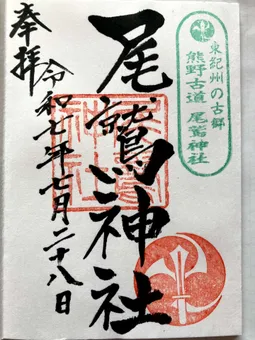 東紀州の古郷
熊野古道 尾鷲神社
尾鷲神社
奉拝
令和七年七月二十八日